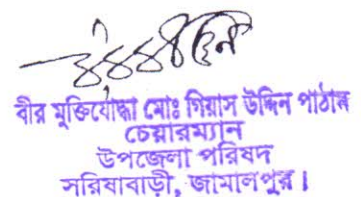 বীর মুক্তিযোদ্ধা মোঃ গিয়াস উদ্দিন পাঠান
চেয়ারম্যান
উপজেলা পরিষদ
সরিষাবাড়ী, জামালপুর।